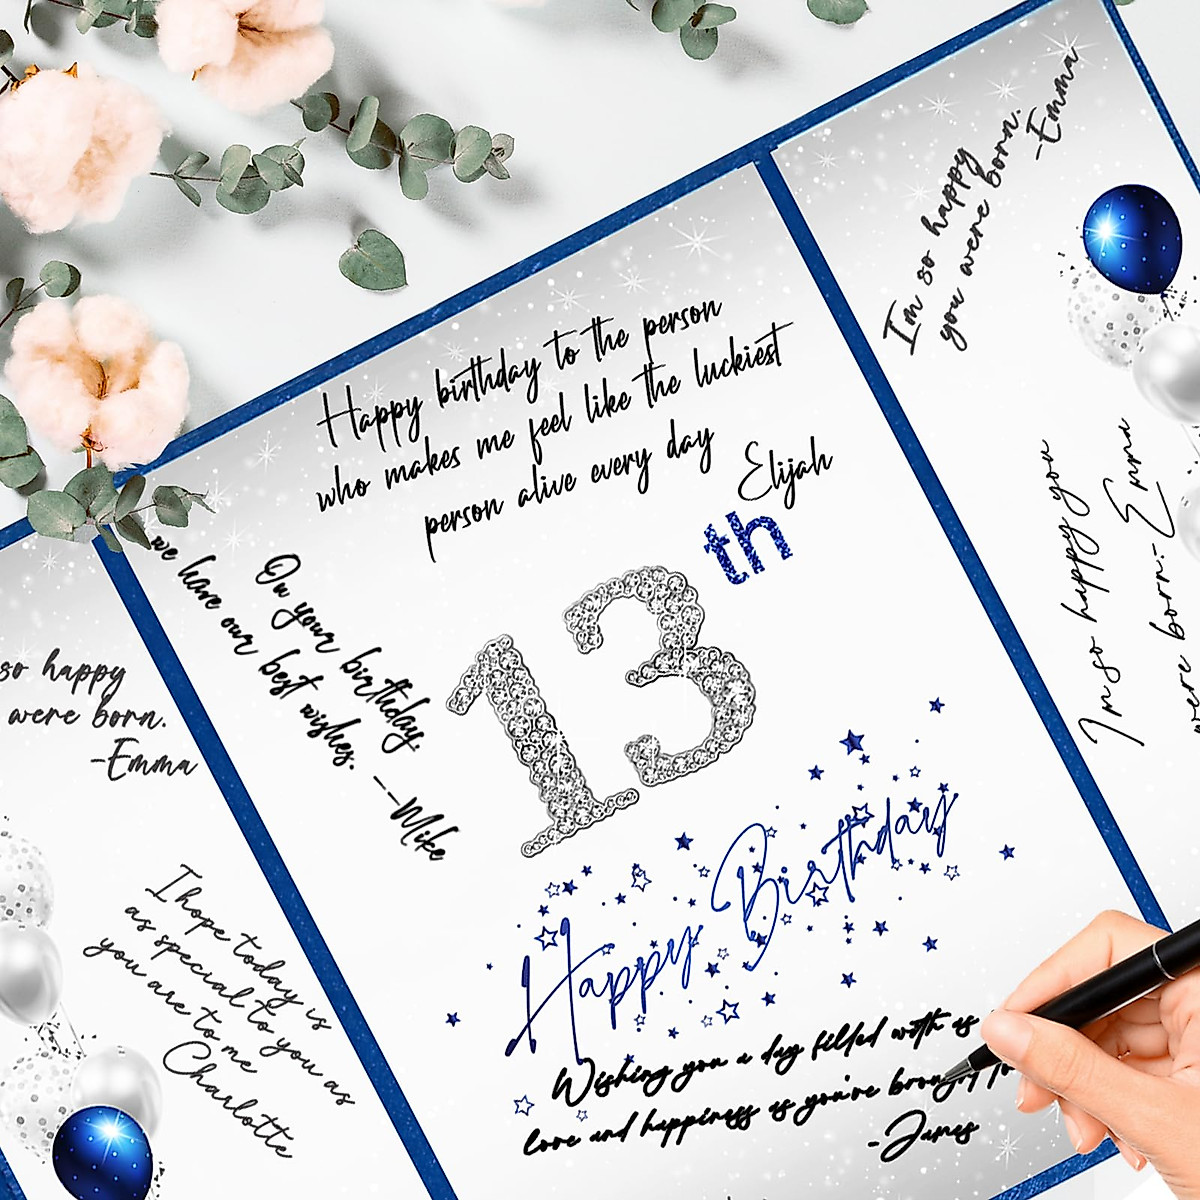 Happy birthday to the person
who makes me feel like the luckiest
person alive every day
Elijah
On your birthday,
we have our best wishes.
--Mike
13th
Happy Birthday
Wishing you a day filled with as
love and happiness as you've brought to
-James
so happy
were born.
-Emma
I hope today is
as special to you as
you are to me
Charlotte
I'm so happy
you were born.
-Emma
I'm so happy you
were born.- Emma